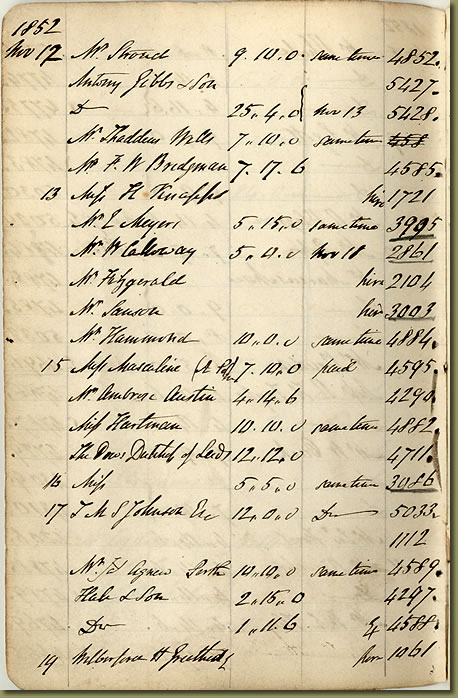 1852
Nov 12 Mr Stroud 9.10.0 sametime 4852.
Antony Gibbs & Son 5427.
Do 25.4.0 Nov 13 5428.
Mr Thaddeus Wells 7.10.0 sametime
Mr F. W Bridgman 7.17.6 4585.
13 Miss H Knapps hire 1721
Mr E Meyers 5.15.0 sametime 3995
Mr W Calloway 5.4.0 Nov 18 2861
Mr Fitzgerald hire 2104
Mr Sanson hire 3003
Mr Hammond 10.0.0 sametime 4884.
15 Miss Masculine 7.10.0 paid 4595.
Mr Ambrose Austin 4.14.6 4290.
Miss Hartman 10.10.0 sametime 4882.
The Dow Dutchess of Leeds 12.12.0 4711.
16 Miss 5.5.0 sametime 3086
17 J M S Johnson Esq 12.0.0 Do 5033.
1112
Agnew Perth 14.10.0 sametime 4589.
Hale & Son 2.15.0 4297.
Do 1.16.6 4588.
19 Wilberforce H hire 1061